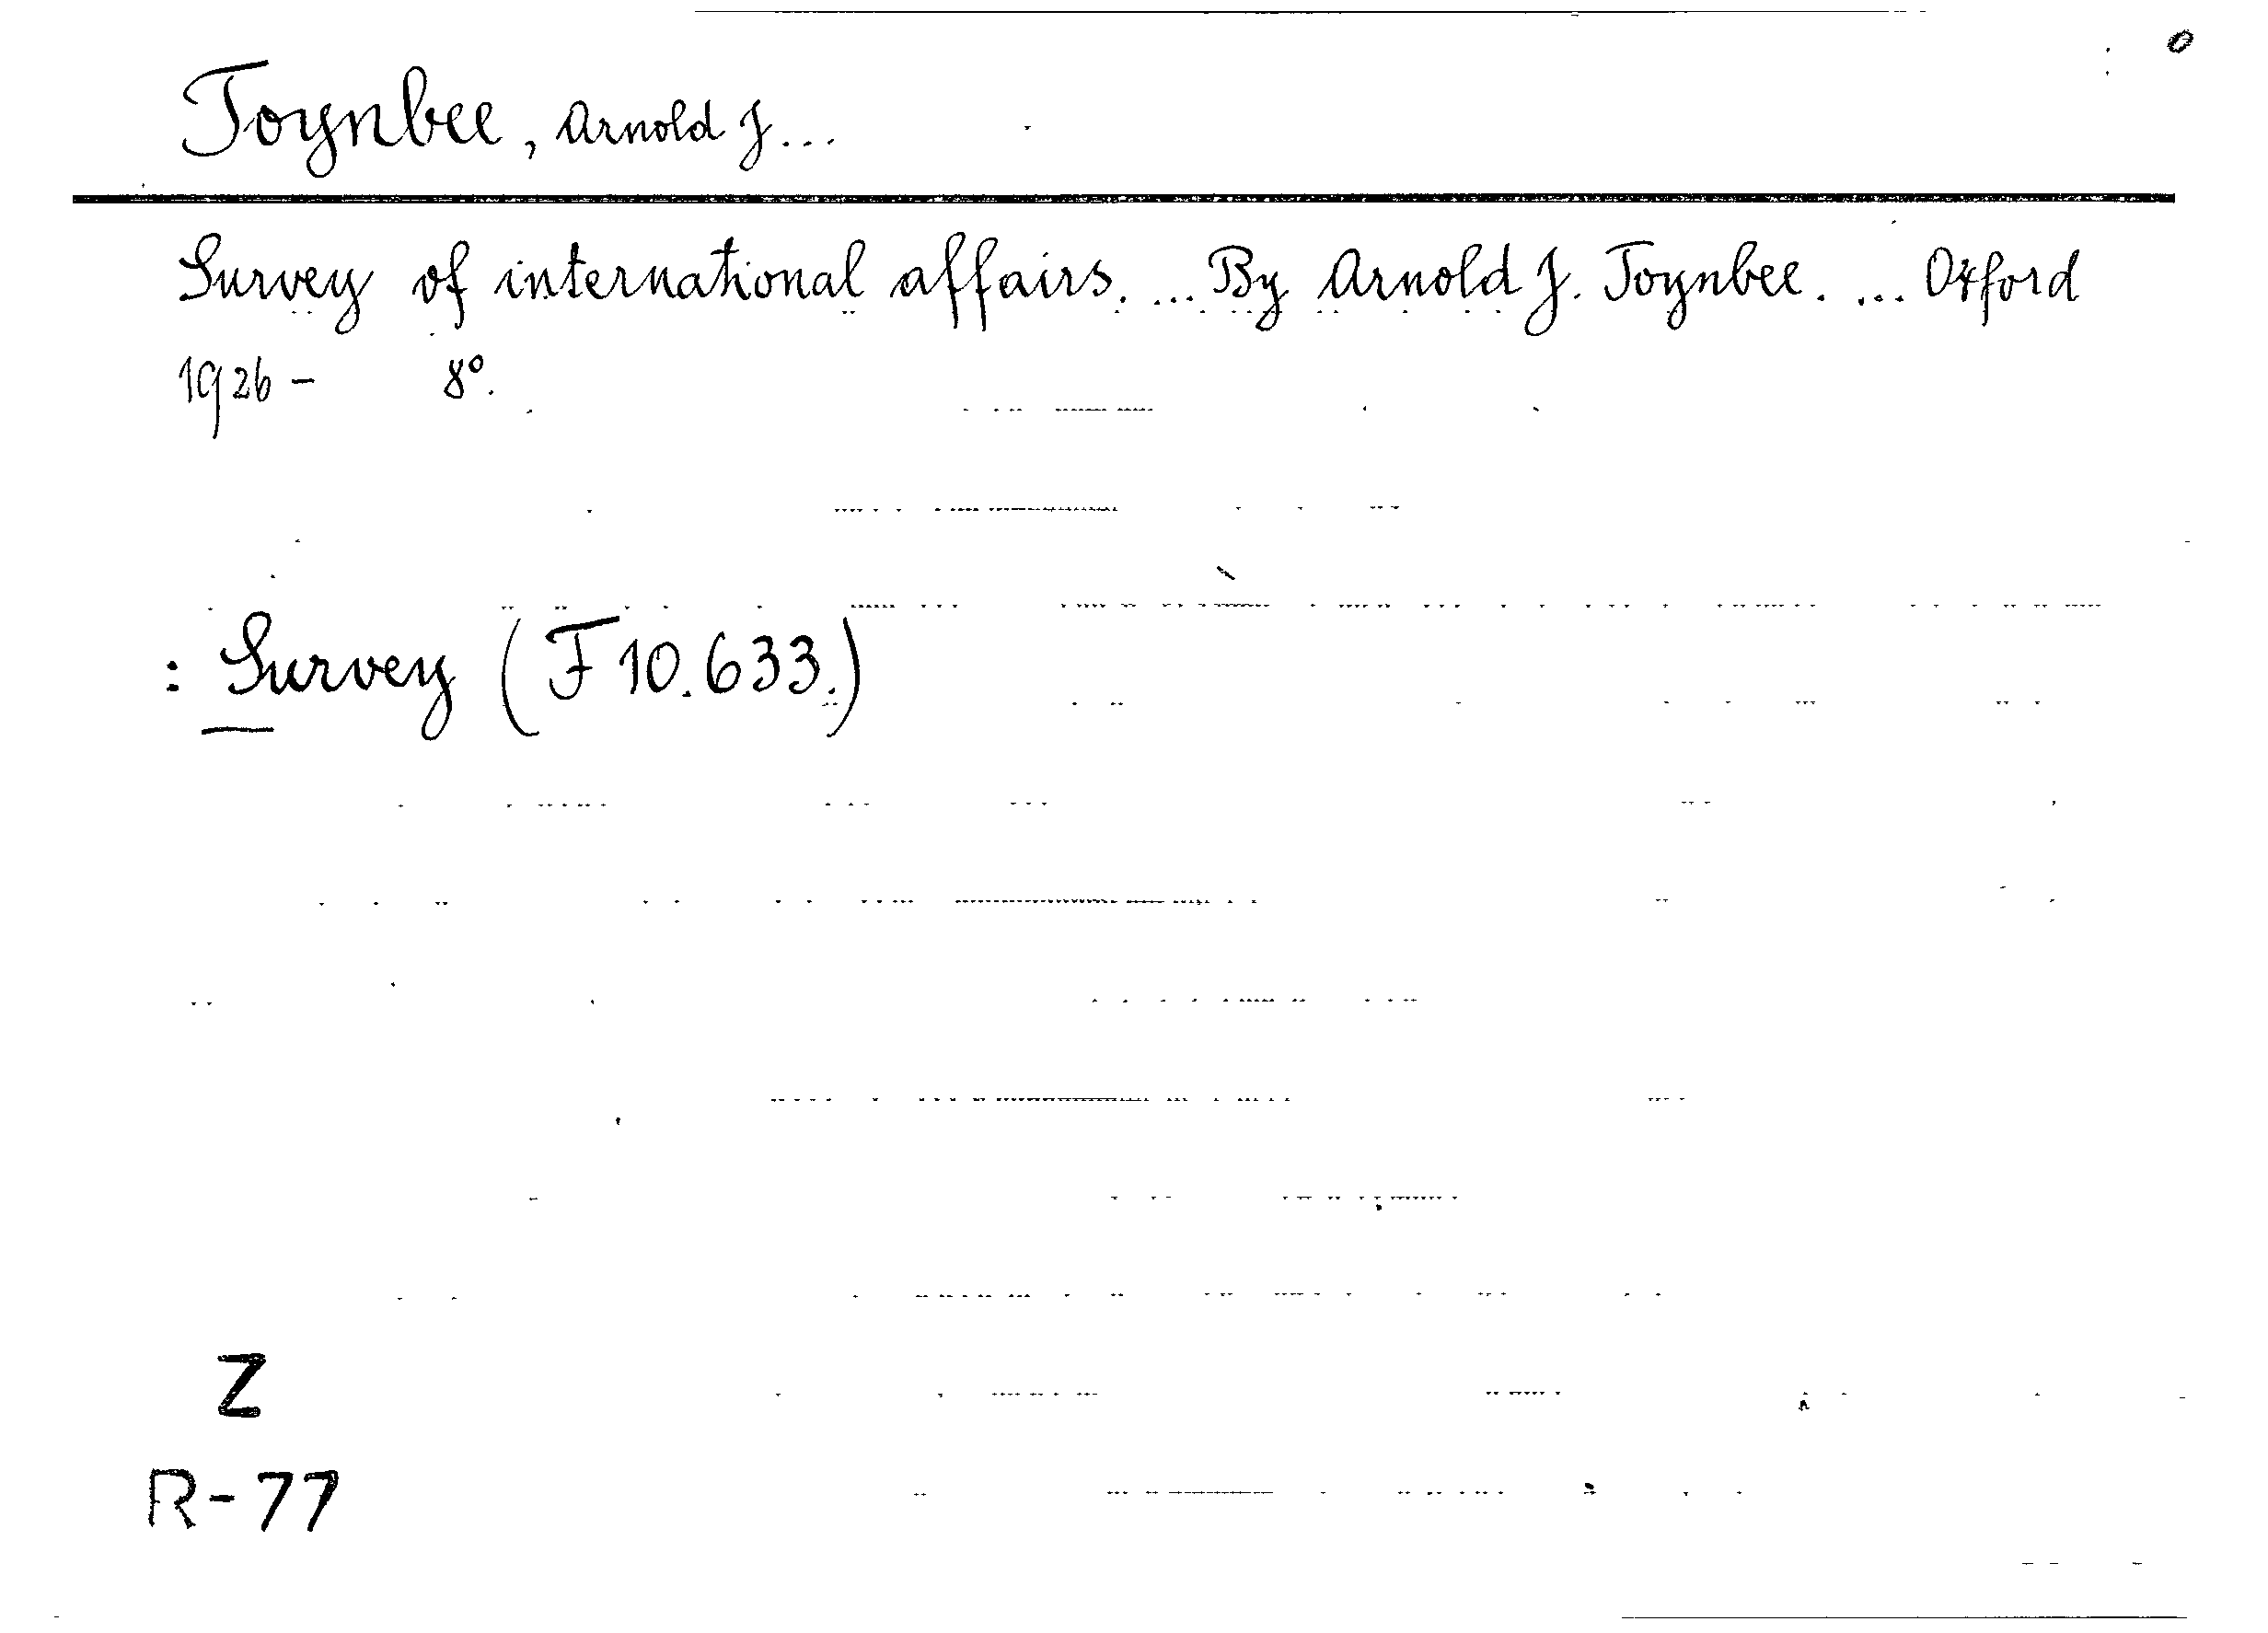 Toynbee, Arnold J...
Survey of international affairs. ... By Arnold J. Toynbee. ... Oxford
1926 - 8°.
: Survey (F 10.633.)
Z
R-77